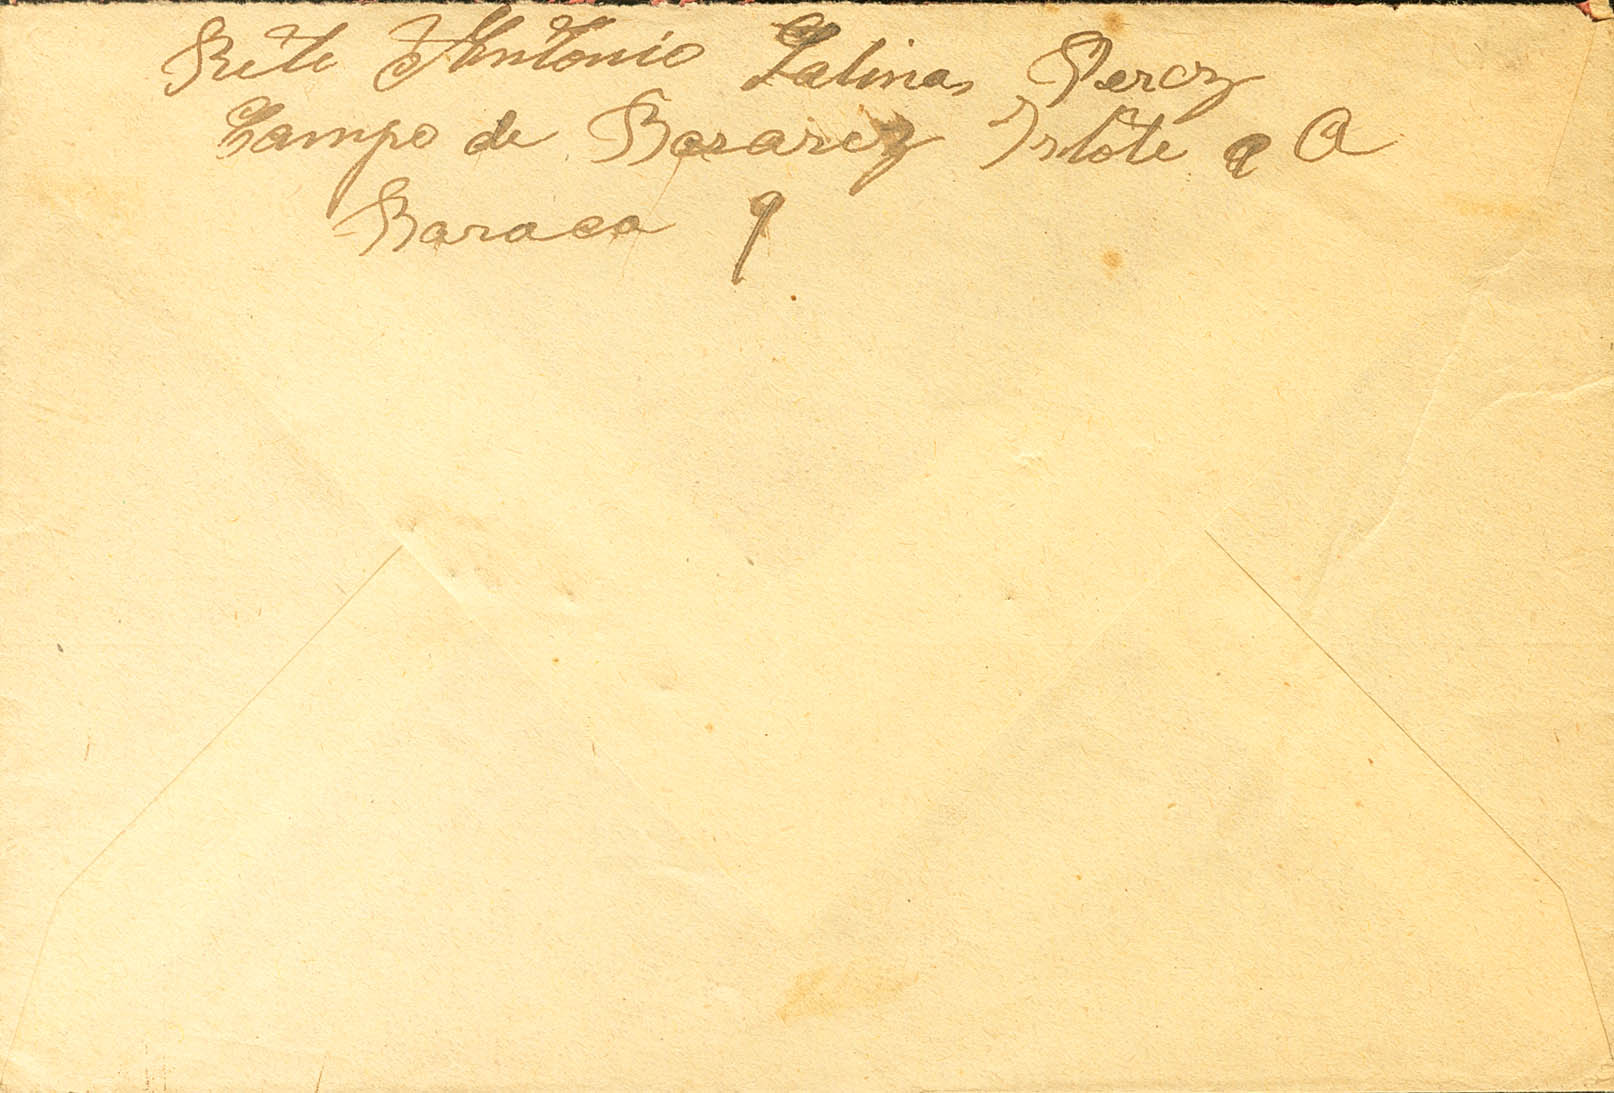 Rete Antonio Salinas Perez
Campo de Bosarez Islote a A
Baraca 9